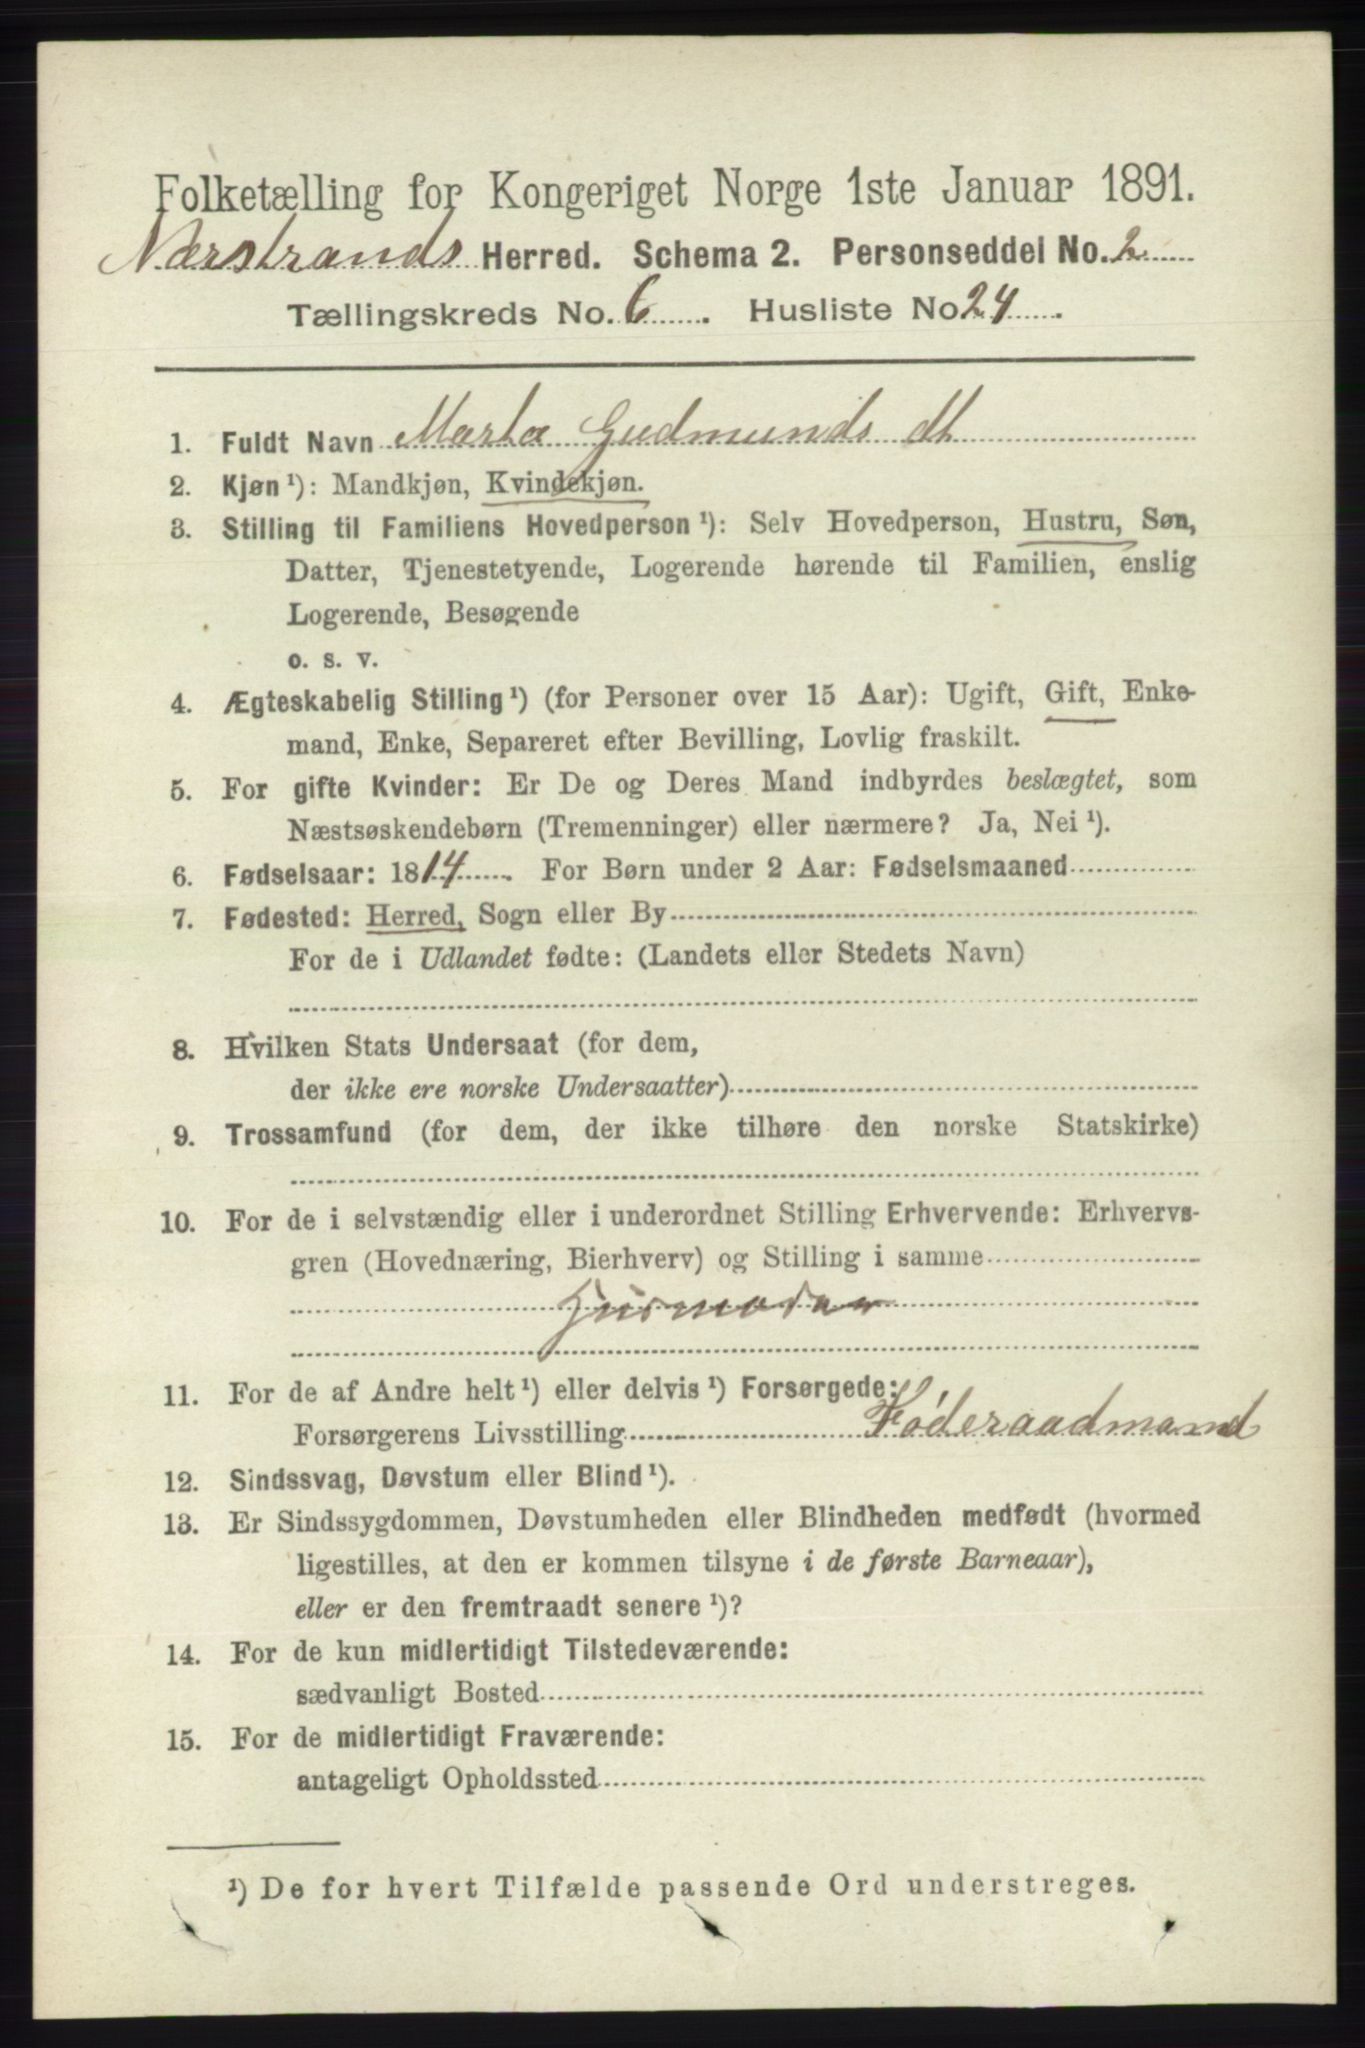 Folketælling for Kongeriget Norge 1ste Januar 1891.
Nærstrands Herred. Schema 2. Personseddel No. 2
Tællingskreds No. 6. Husliste No 24.
1. Fuldt Navn Marta Gudmunds dt
2. Kjøn ¹): Mandkjøn, Kvindekjøn.
3. Stilling til Familiens Hovedperson ¹): Selv Hovedperson, Hustru, Søn,
Datter, Tjenestetyende, Logerende hørende til Familien, enslig
Logerende, Besøgende
o. s. v.
4. Ægteskabelig Stilling ¹) (for Personer over 15 Aar): Ugift, Gift, Enke-
mand, Enke, Separeret efter Bevilling, Lovlig fraskilt.
5. For gifte Kvinder: Er De og Deres Mand indbyrdes beslægtet, som
Næstsøskendebørn (Tremenninger) eller nærmere? Ja, Nei ¹).
6. Fødselsaar: 1814. For Børn under 2 Aar: Fødselsmaaned
7. Fødested: Herred, Sogn eller By
For de i Udlandet fødte: (Landets eller Stedets Navn)
8. Hvilken Stats Undersaat (for dem,
der ikke ere norske Undersaatter)
9. Trossamfund (for dem, der ikke tilhøre den norske Statskirke)
10. For de i selvstændig eller i underordnet Stilling Erhvervende: Erhvervs-
gren (Hovednæring, Bierhverv) og Stilling i samme
Husmoder
11. For de af Andre helt ¹) eller delvis ¹) Forsørgede:
Forsørgerens Livsstilling Føderaadmand
12. Sindssvag, Døvstum eller Blind ¹).
13. Er Sindssygdommen, Døvstumheden eller Blindheden medfødt (hvormed
ligestilles, at den er kommen tilsyne i de første Barneaar),
eller er den fremtraadt senere ¹)?
14. For de kun midlertidigt Tilstedeværende:
sædvanligt Bosted
15. For de midlertidigt Fraværende:
antageligt Opholdssted
¹) De for hvert Tilfælde passende Ord understreges.